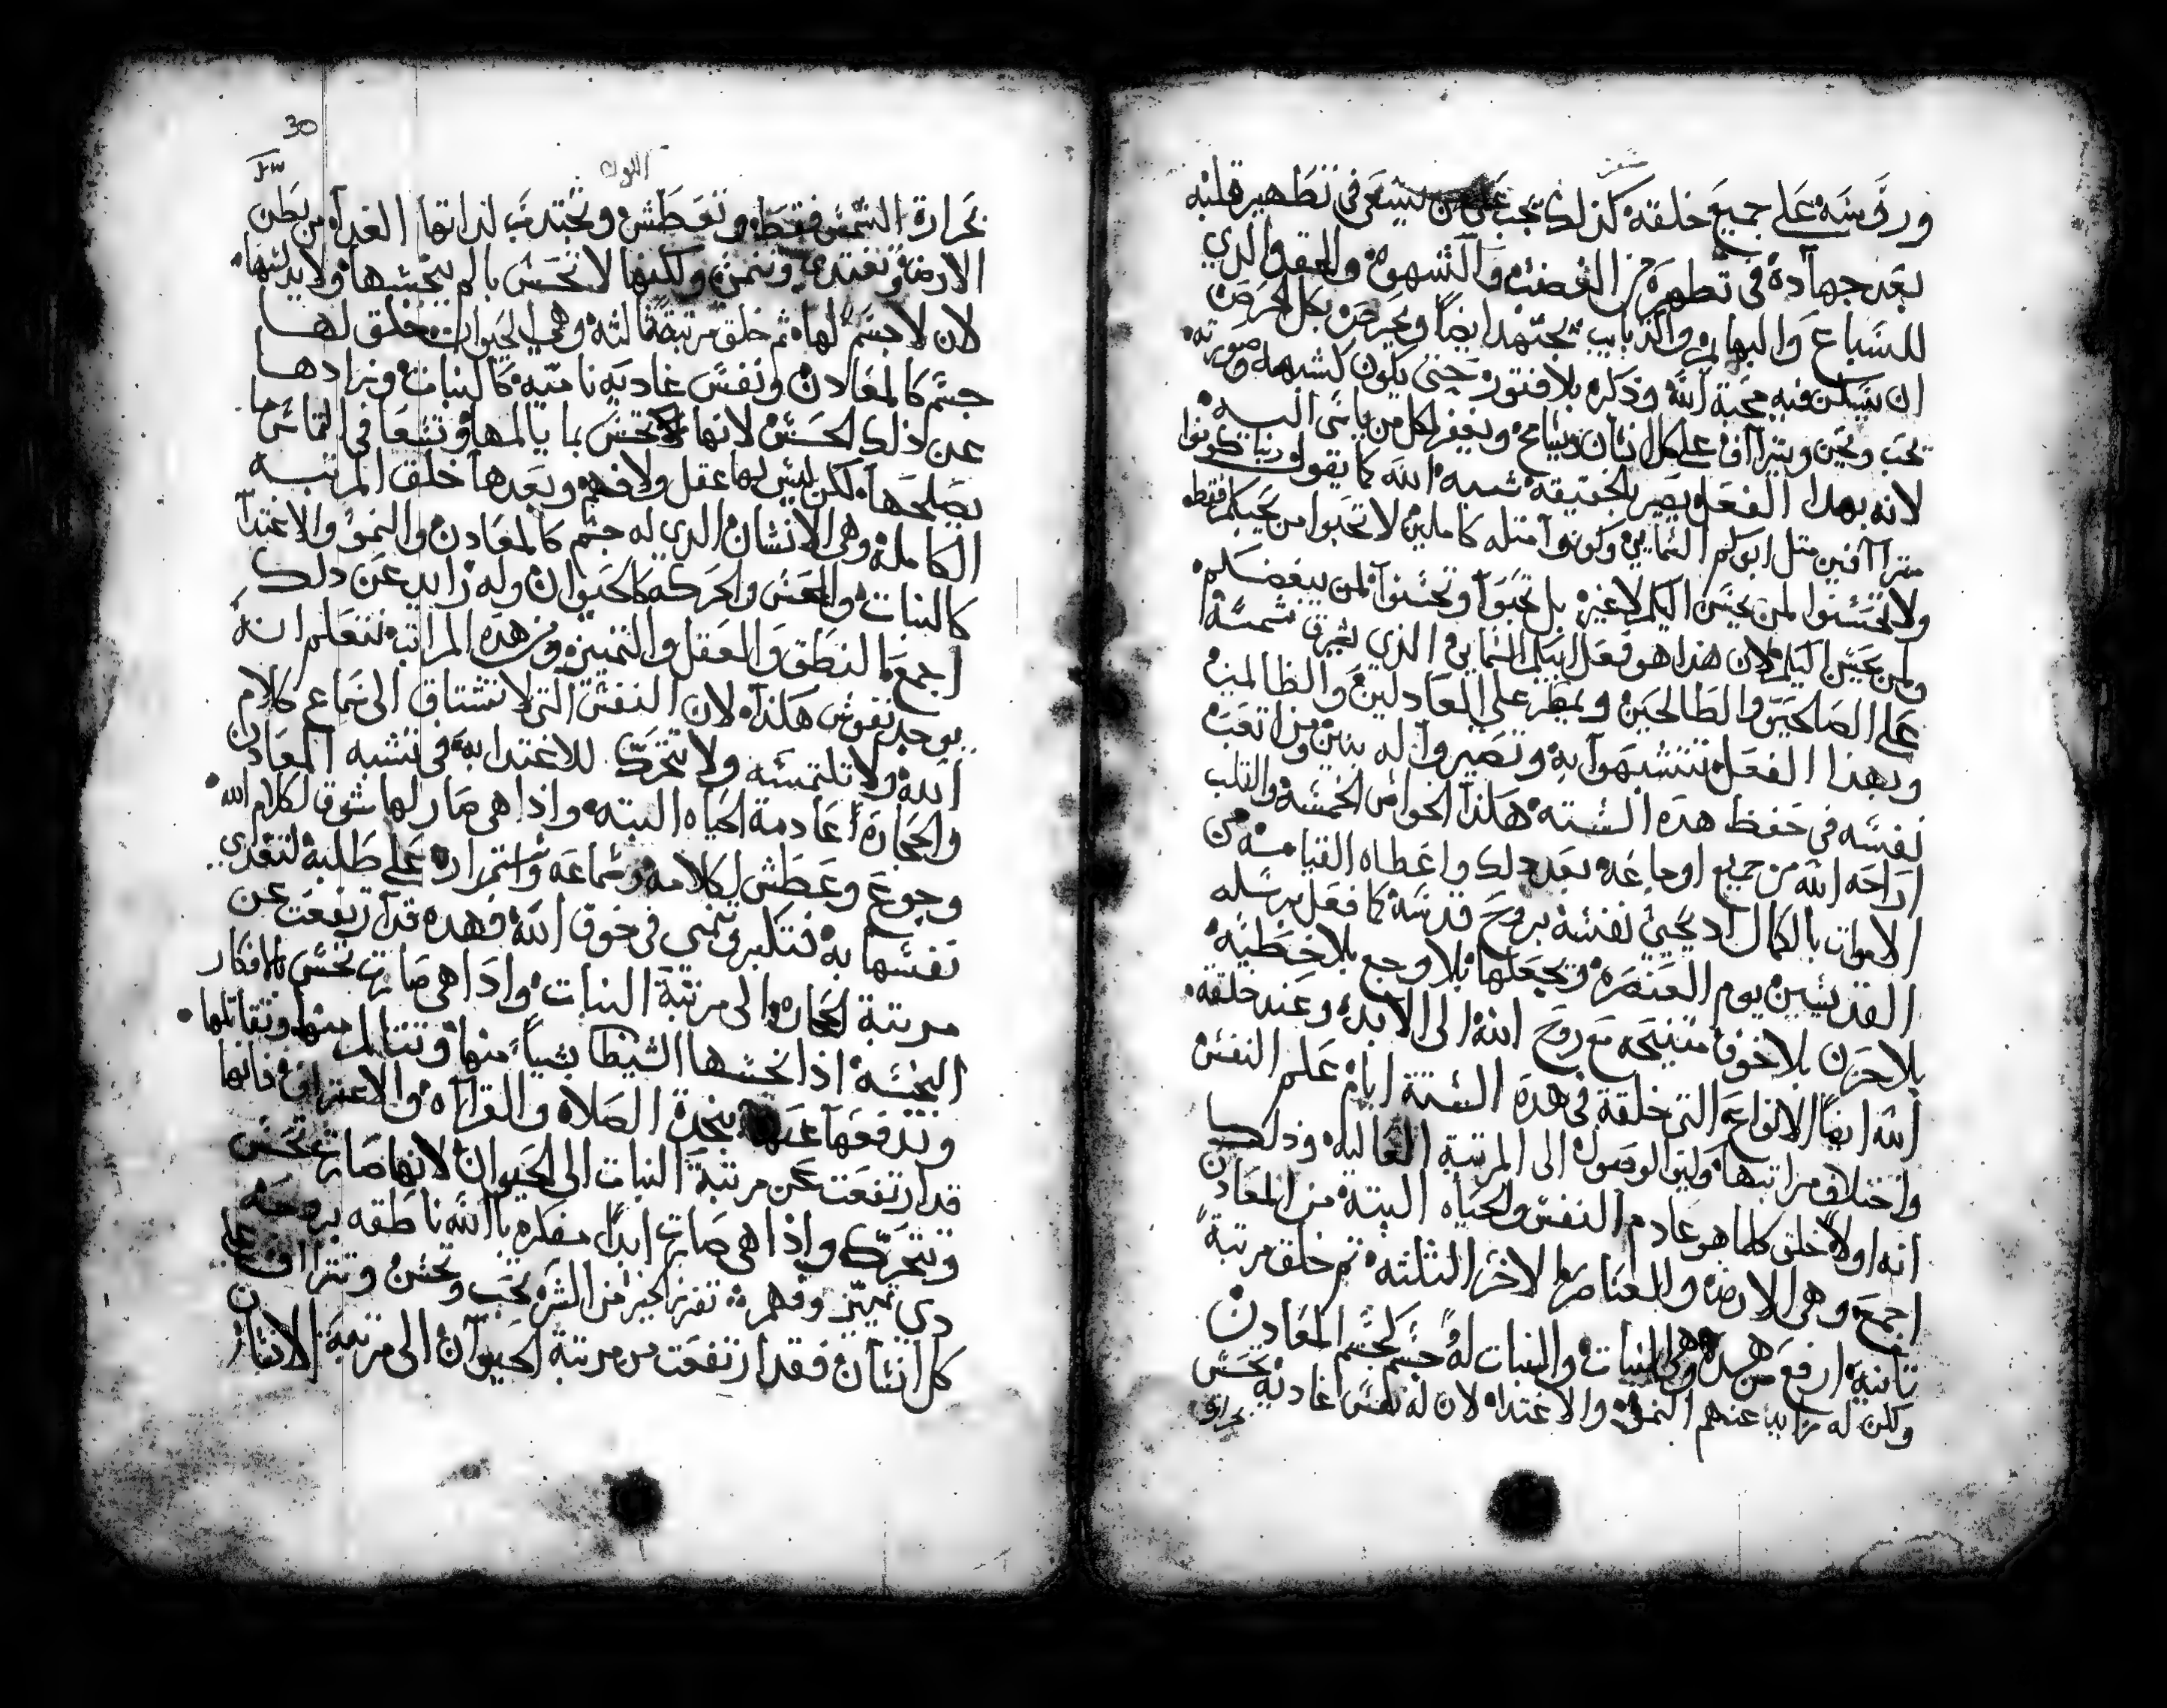 ورؤسه على جميع خلقته كذلك يجب على من يسعى في تطهير قلبه
بعد جهاده في تطهيره من الغضب والشهوة والحقد الذي
للسباع والبهايم والذبابيب يجتهد ايضاً ويحرص بكل الحرص
ان يسكن فيه محبة الله وذكره بلا فتور حتى يكون كشبهه وصورته
يحب ويحن ويتراآف على كل انسان ويسامح ويغفر لكل من ياسى اليه
لانه بهدا الفعل يصير بالحقيقة شبه الله كما يقول ربنا كونوا
متراآفين مثل ابوكم السمايي وكونوا مثله كاملين لا تحبوا من يحبكم فقط
ولا تحسنوا لمن يحسن اليكم لا غير بل تحبوا وتحسنوا لمن يبغضكم
ولمن يحسن اليكم لان هذا هو فعل ابيكم السمايي الذي تشرق شمسه
على الصالحين والطالحين ويمطر على العادلين والظالمين
وبهذا الفعل تتشبهوا به وتصيروا له بنين ومن اتعب
نفسه في حفظ هذه الستة هكذا الحواس الخمسة والقلب
اراحه الله من جميع اوجاعه بعد دلك واعطاه القيامة من
الاموات بالكمال اد يحيي نفسه بروح قدسه كما فعل برسله
القديسين يوم العنصرة ويجعلها بلا وجع بلا خطيه
بلا حزن بلا خوف متنيحه مع روح الله الى الابد وعند خلقه
الله ايضاً الانواع التي خلقه في هذه الستة ايام علم النفس
واختلاف مراتبها وليق الوصول الى المرتبة العاليه وذلك
انه اولاً خلق كلما هو عادم النفس والحياه البتة من المعادن
اجمع وهي الارض والعناصر الاخر الثلثة ثم خلق مرتبةً
تانية ارفع من هده وهي النبات والنبات له جسم كجسم المعادن
ولكن له زايد عنهم النمو والاغتداء لان له نفس غادية يحس
بحرارة
30
بحرارة الشمس فقط وتعطش وتجتدب لذاتها الغداء من بطن
الارض وتغتدي وتنمى ولكنها لا تحس بالم ينخسها ولا يد لمسها
لان لا جسم لها ثم خلق مرتبة ثالثة وهي الحيوان خلق لها
جسم كالمعادن ونفس غاديه ناميه كالنبات وزادها
عن ذلك الحس لانها تحس بما يالمها وتسعا في التماس ما
يصلحها لكن ليس لها عقل ولا فهم وبعدها خلق المرتبة
الكاملة وهي الانسان الذي له جسم كالمعادن والنمو والاغتدا
كالنبات والحس والحركه كالحيوان وله زايد عن دلك
اجمع النطق والعقل والتمييز ومن هده المراتب نتعلم انه
يوجد نفوس هكذا لان النفس التي لا تشتاق الى سماع كلام
الله ولا تلتمسه ولا تتحرك للاغتدا به فهي تشبه المعادن
والحجارة عادمة الحياه البته واذا هي صار لها شوق لكلام الله
وجوع وعطش لكلامه وسماعه واستمراره على طلبه لتغدي
نفسها به فتكبر وتنمى في خوف الله فهده قد ارتفعت عن
مرتبة الحجاره الى مرتبة النبات واذا هي صارت تحس بالافكار
النجسة اذا نخسها الشيطان بشياً منها وتتالم منها وتقاتلها
وتدفعها عنها بنجدة الصلاة والقراآه والاعتراف فانها
قد ارتفعت عن مرتبة النبات الى الحيوان لانها صارت تحس
وتتحرك واذا هي صارت ابداً مفكره بالله ناطقه بروحه
دي تمييز وفهم تفرز الخير من الشر تحب وتحسن وتتراآف على
كل انسان فقد ارتفعت من مرتبة الحيوان الى مرتبة الانسان